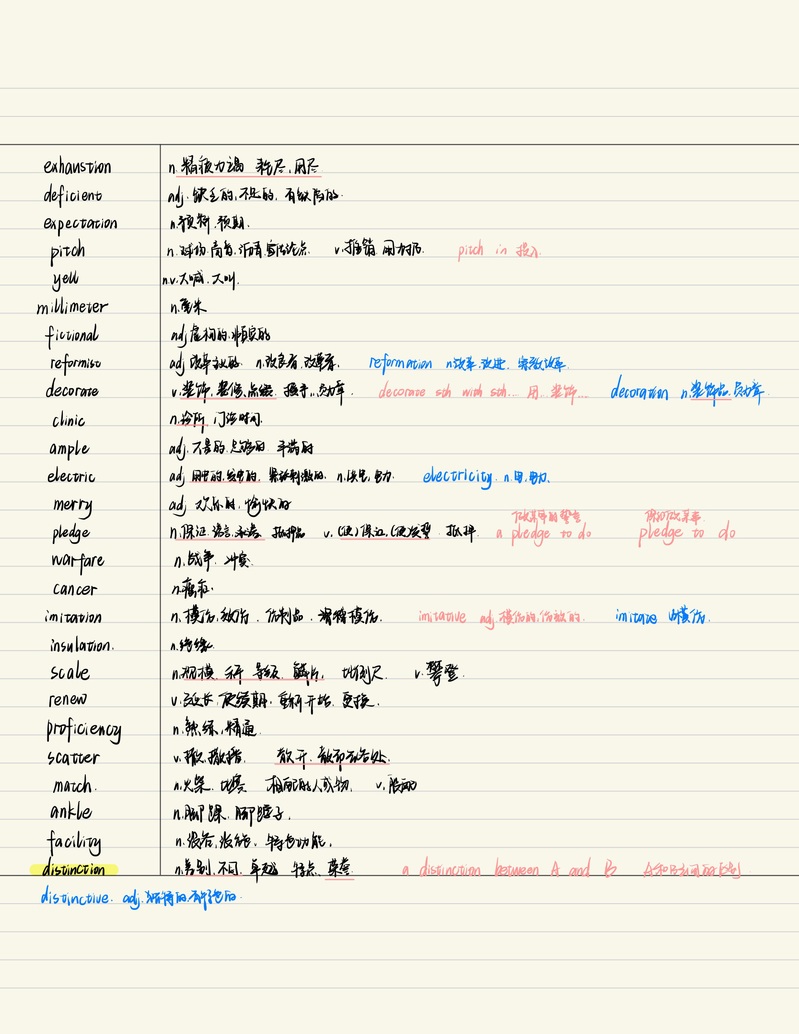 exhaustion n.精疲力竭 耗尽,用尽
deficient adj.缺乏的,不足的,有缺陷的.
expectation n.预料,预期.
pitch n.球场,高音,沥青 v.推销 pitch in 投入
yell n.v.大喊,大叫.
millimeter n.毫米
fictional adj.虚构的,
reformist adj 改革 的. n.改良者,改革者. reformation n 改革,改进.
decorate v.装饰,装修,点缀 授予 decorate sth with sth... 用...装饰... decoration n.装饰品.
clinic n.诊所 门诊时间.
ample adj. 足够的 丰满的
electric adj 用电的,发电的, 刺激的. n.供电,电力. electricity. n.电,电力.
merry adj 欢乐的,愉快的
做某事的誓言 保证做某事.
pledge n.保证.诺言. 抵押品 v.(使)保证,(使)发誓 抵押 a pledge to do pledge to do
warfare n.战争, 冲突.
cancer n.癌症.
imitation n.模仿,效仿. 仿制品. 滑稽模仿. imitative adj.模仿的,仿效的. imitate v.模仿.
insulation. n.绝缘.
scale n.规模. 等级. 鳞片, 比例尺 v.攀登.
renew v.延长 重新开始. 更换.
proficiency n.熟练,精通.
scatter v.撒,撒播 散开,
match. n.火柴. 比赛 相配的人或物,
ankle n.脚踝. 脚脖子,
facility n.设备,设施, 特色功能,
distinction n.差别,不同. 卓越 特点. 荣誉. a distinction between A and B A和B之间的区别
distinctive. adj.独特的